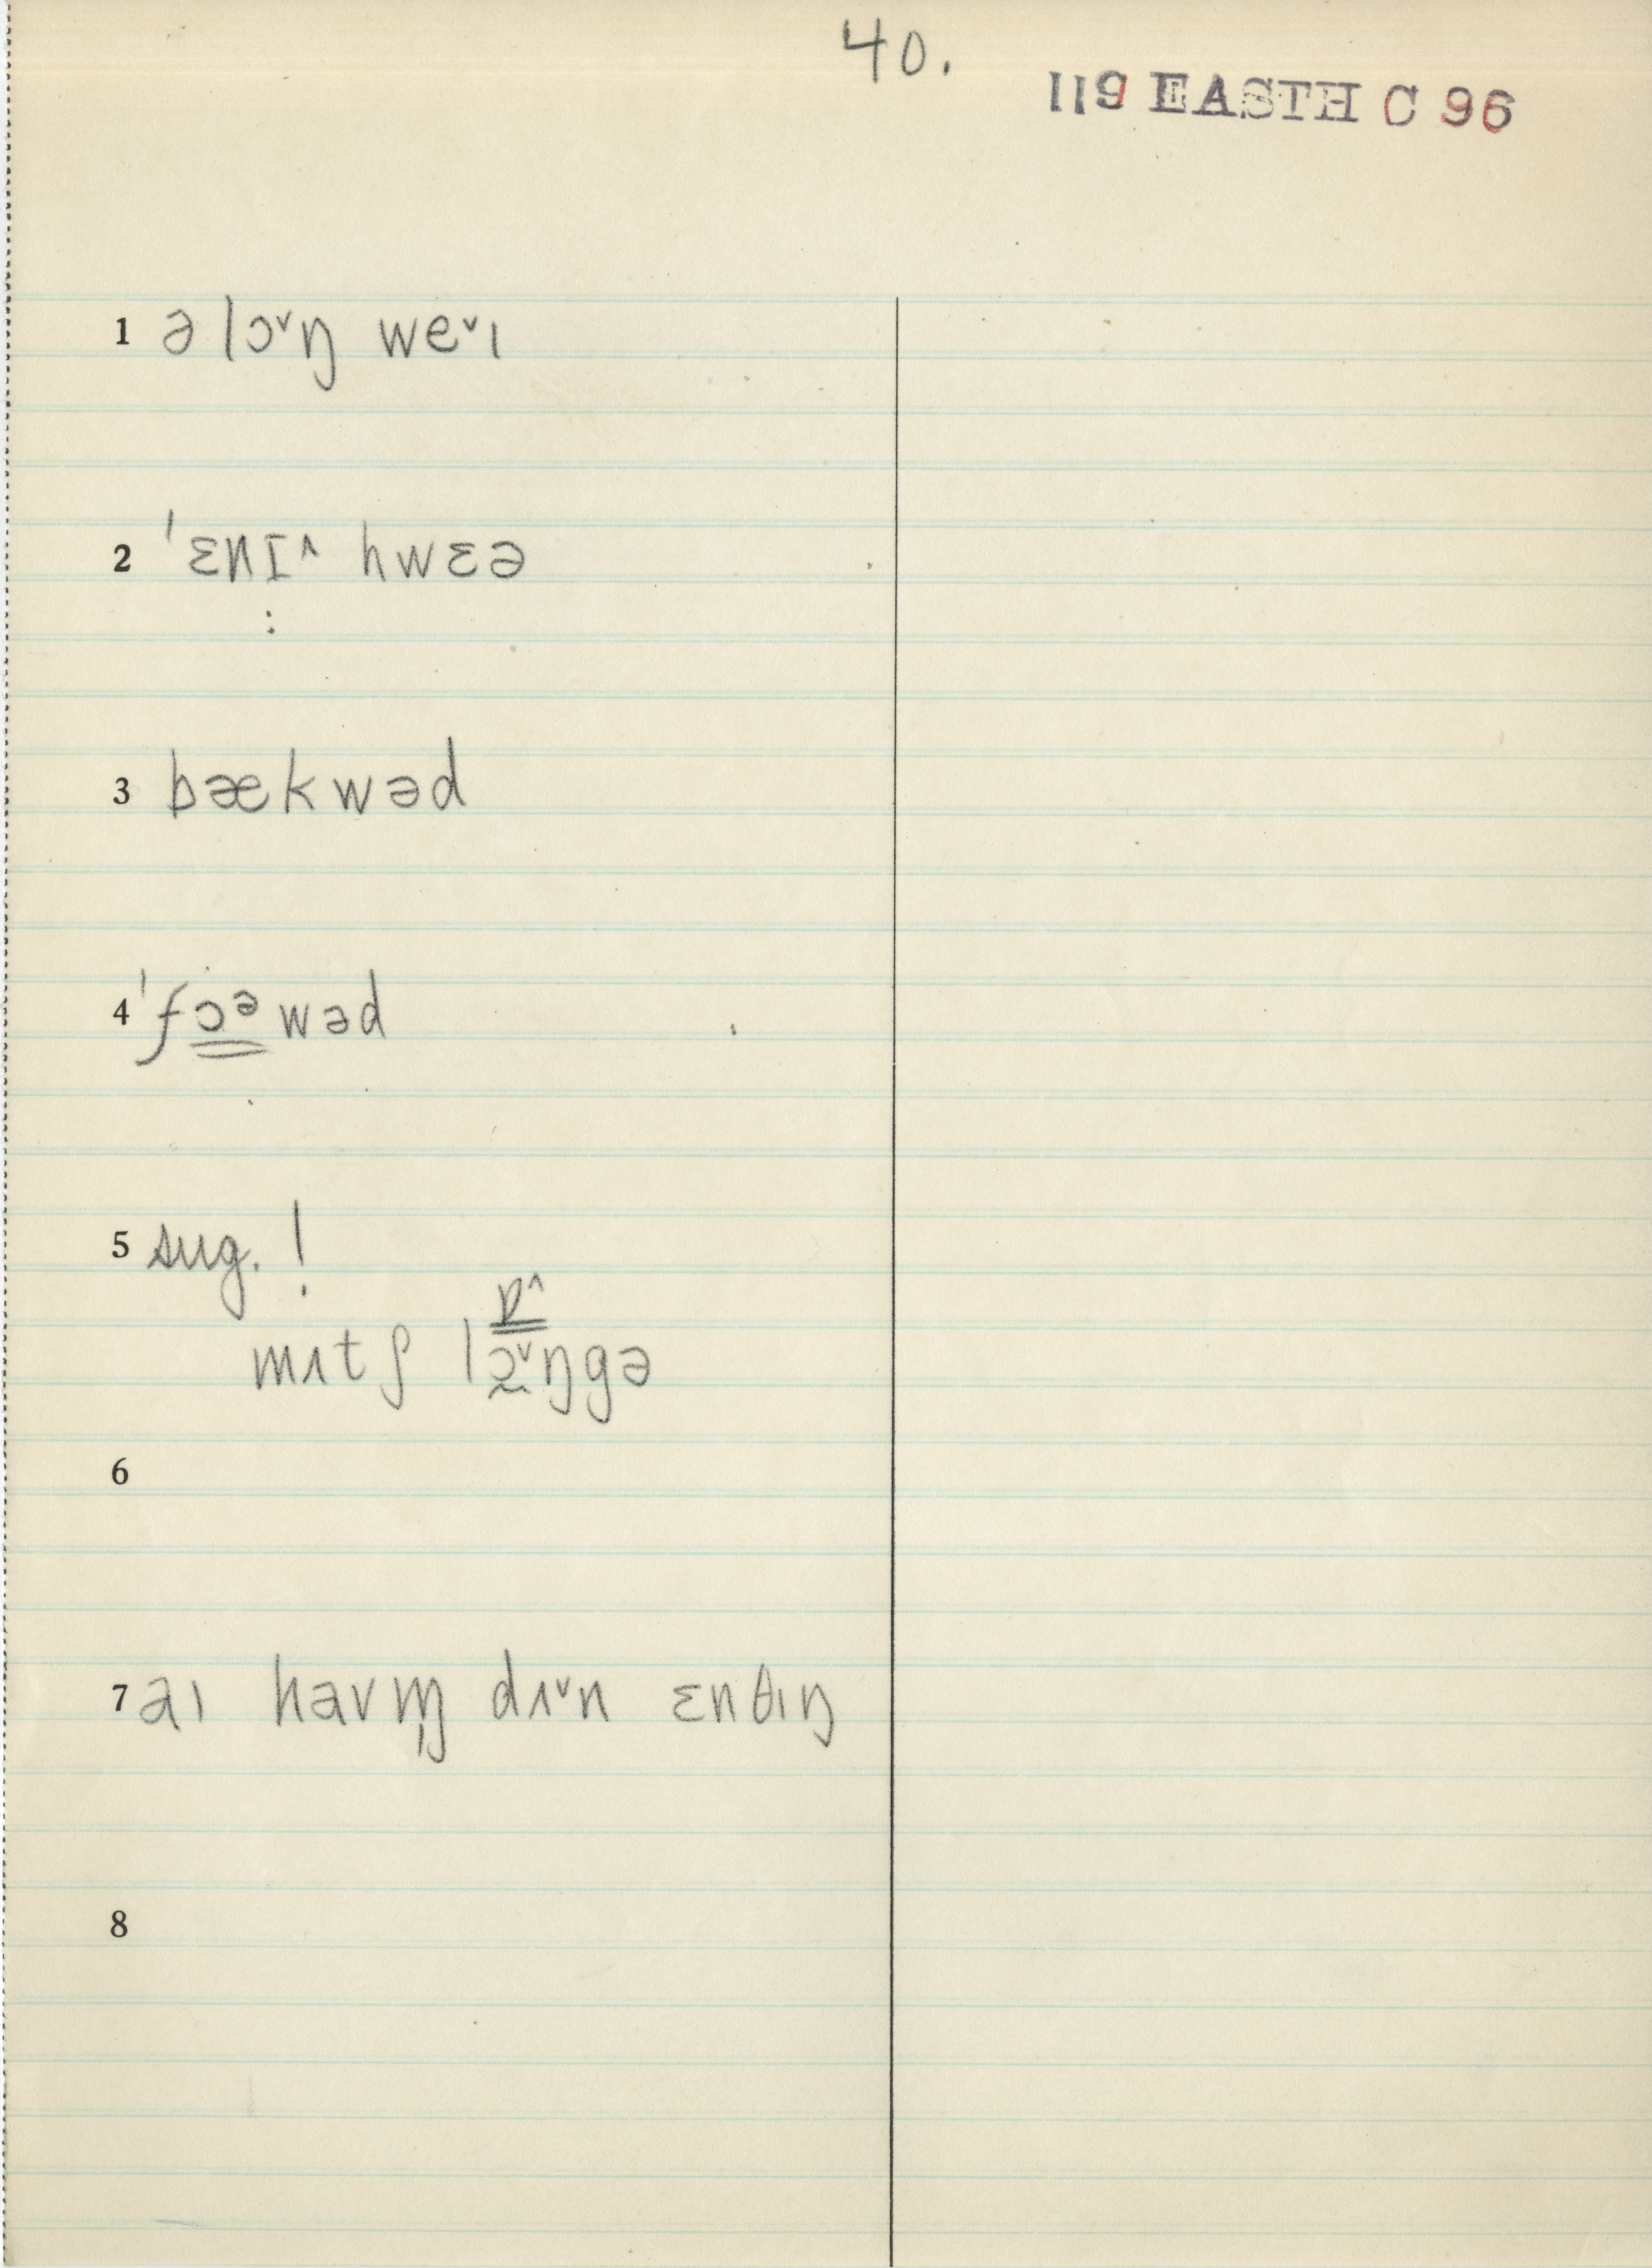 40.
119 EASTH C 96
1 ə lɔ˅ŋ we˅ɪ
2 ˈɛnɪ˄ hwɛə
:
3 bækwəd
4 ˈfɔᵊwəd
5 sug. !
ɒ˄
mɪtʃ lɔ˅ŋgə
6
7 aɪ havm̩ dɪ˅n ɛnθɪŋ
8